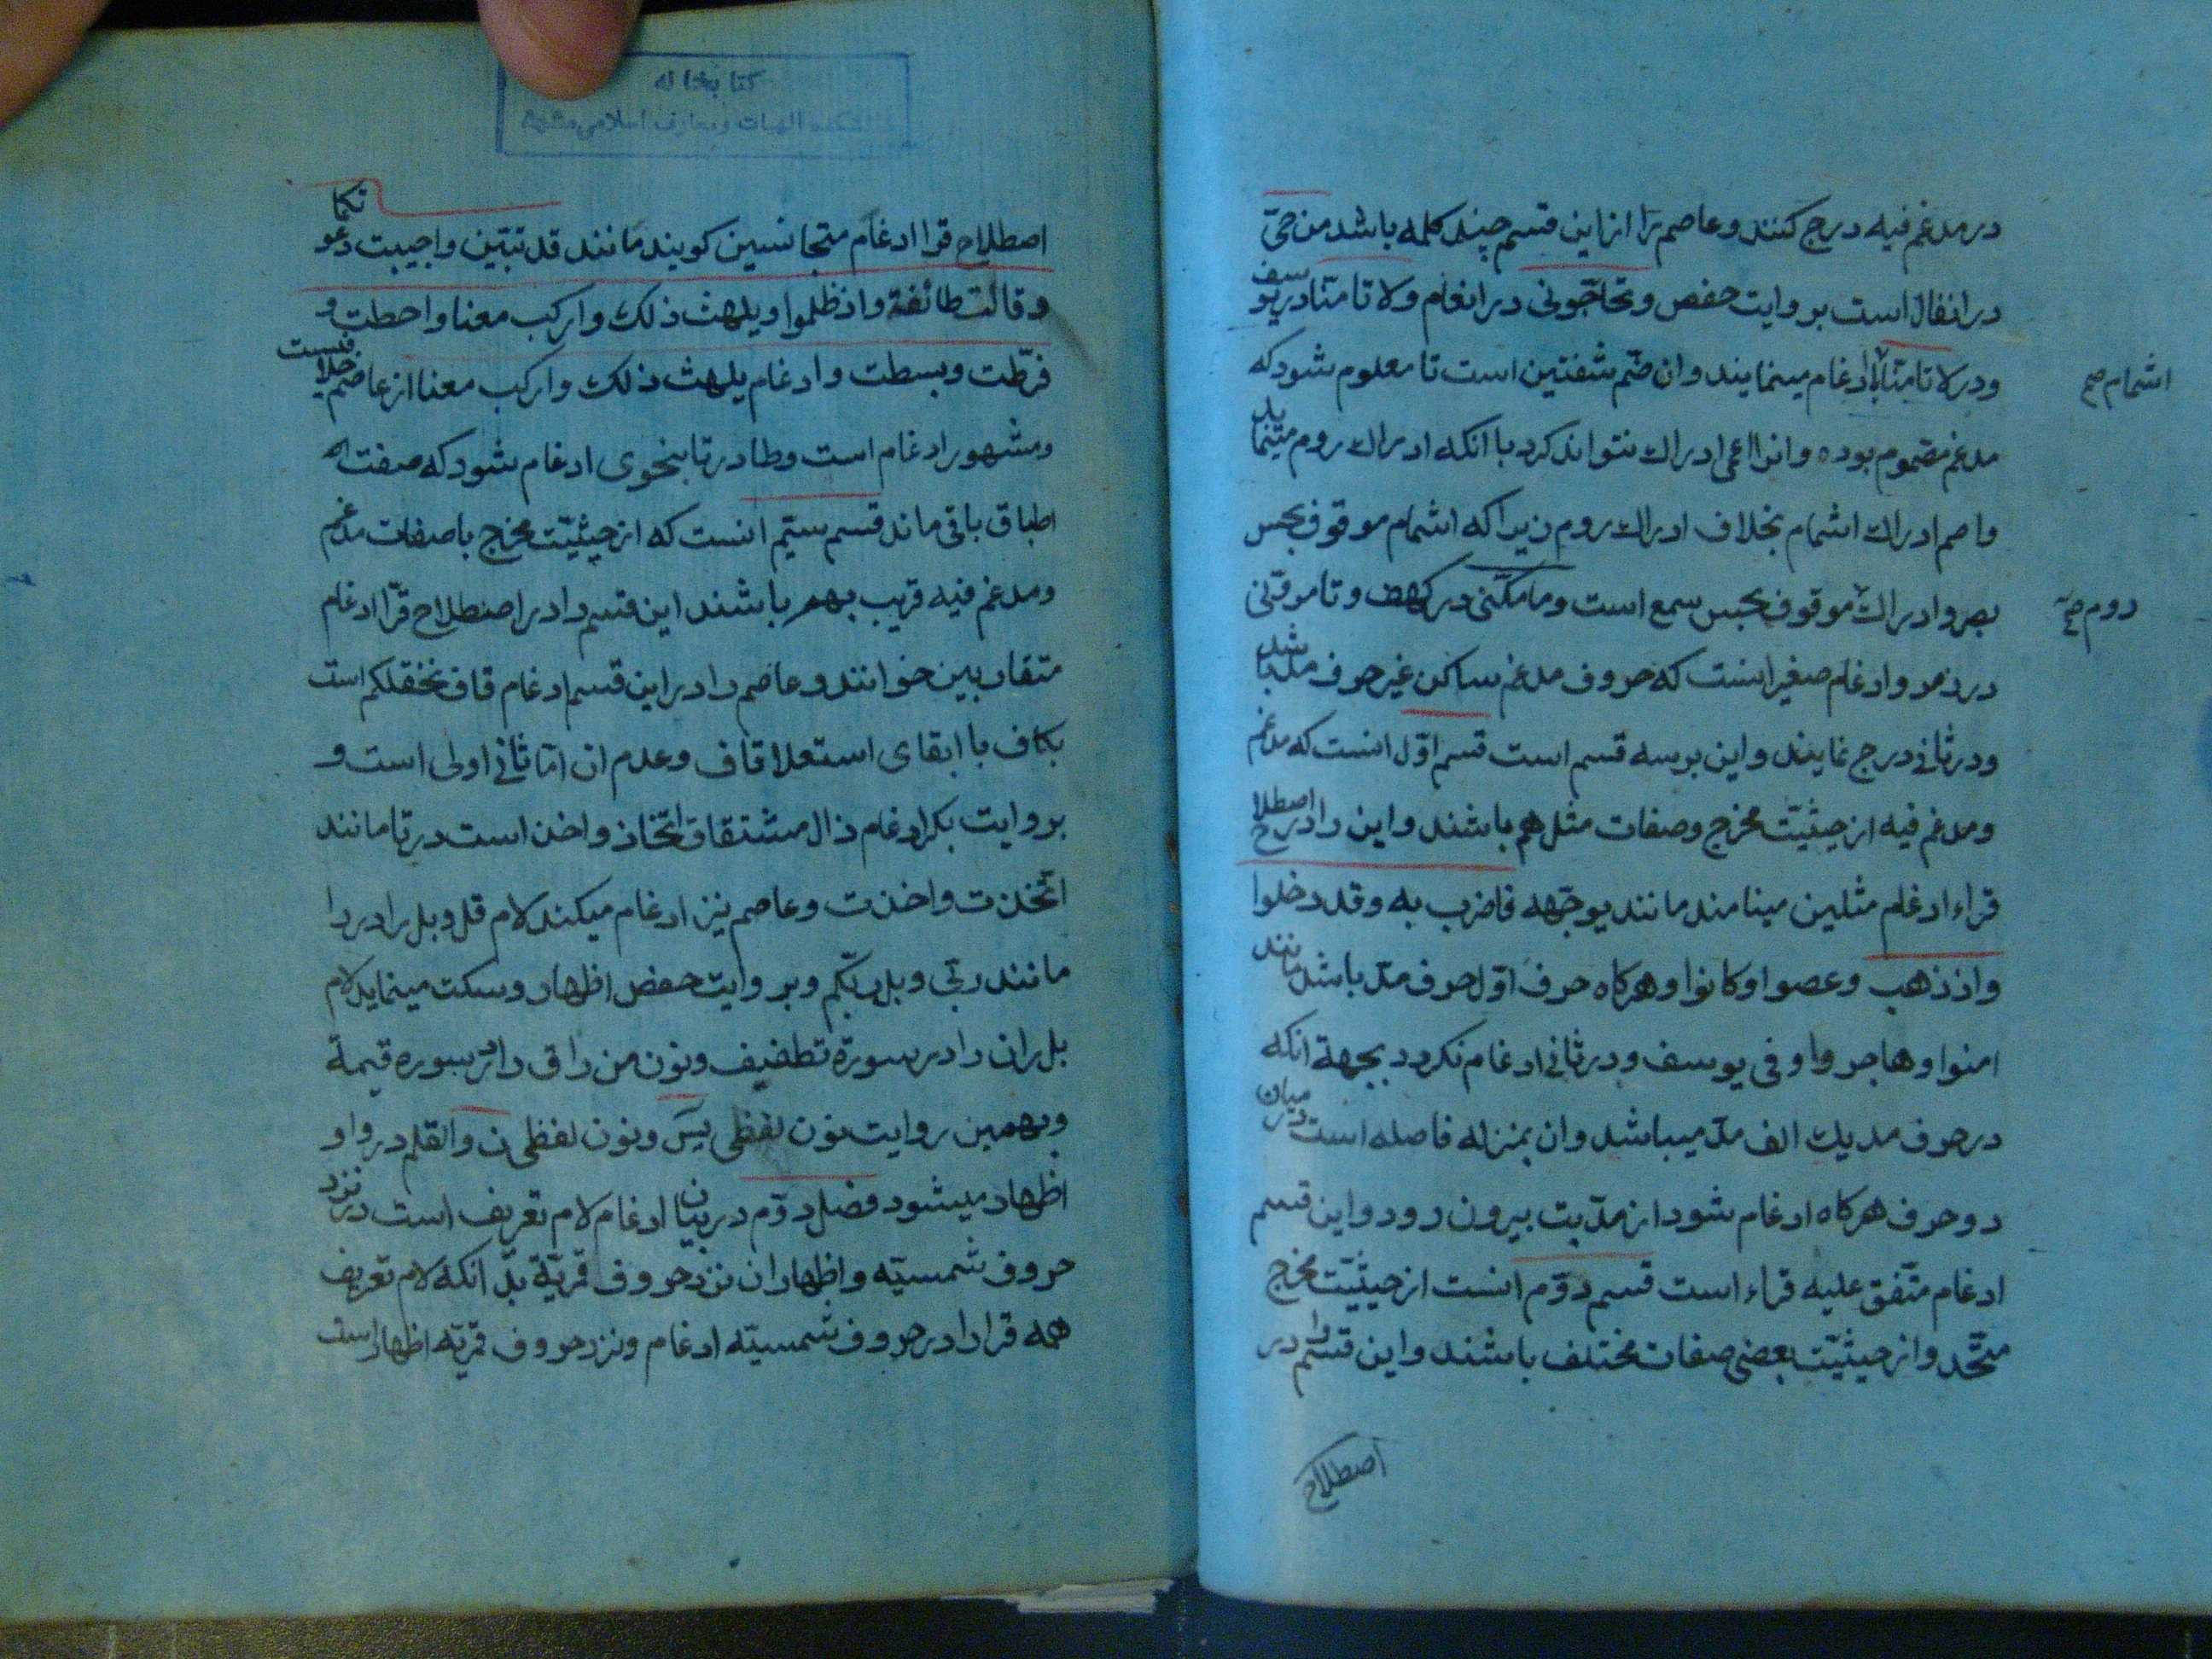 در مدغم فیه درج کنند و عاصم را از این قسم چند کلمه باشد من حیّ
در انفال است بروایت حفص و تحاجّونی در انعام و لا تامنّا در یوسف
و در لا تامنّا با ادغام مینمایند و ان ضم شفتین است تا معلوم شود که
اشمام صح
مدغم مضموم بوده و انرا اعمی ادراک نتواند کرد با انکه ادراک روم میتنماید
و اصم ادراک اشمام بخلاف ادراک روم زیرا که اشمام موقوف بحس
بصر و ادراک موقوف بحس سمع است و ما مکّنی در کهف و تامروّنی
دوم صح
در زمر و ادغام صغیر انست که حروف مدغم ساکن غیر حروف مد باشد
و در ثانی درج نمایند و این بر سه قسم است قسم اوّل انست که مدغم
و مدغم فیه از حیثیّت مخرج و صفات مثل هم باشند و این را در اصطلاح
قراء ادغام مثلین مینامند مانند یوجّهه فاضرب به و قد دخلوا
و اذ ذهب و عصوا و کانوا و هرکاه حرف اوّل حرف مدّ باشد مانند
امنوا و هاجروا و فی یوسف و در ثانی ادغام نکردد بجهة انکه
در حرف مد یک الف مدّ میباشد و ان بمنزله فاصله است در میان
دو حرف هرکاه ادغام شود از مدّیت بیرون رود و این قسم
ادغام متّفق علیه قراء است قسم دوّم انست از حیثیّت مخرج
متّحد و از حیثیّت بعضی صفات مختلف باشند و این قسم را در
اصطلاح
کتابخانه
دانشکده الهیات و معارف اسلامی مشهد
اصطلاح قرا ادغام متجانسین کویند مانند قد تبّین و اجیبت دعوتکما
و قالت طائفة و اذ ظلموا و یلهث ذلک و ارکب معنا و احطت و
فرّطت و بسطت و ادغام یلهث ذلک و ارکب معنا از عاصم خلافیست
و مشهور ادغام است و طا در تا بنحوی ادغام شود که صفت
اطباق باقی ماند قسم سیّم انست که از حیثیّت مخرج یا صفات مدغم
و مدغم فیه قریب بهم باشند این قسم را در اصطلاح قرّا ادغام
متقاربین خوانند و عاصم را در این قسم ادغام قاف نخلقکم است
بکاف با ابقای استعلا قاف و عدم ان امّا ثانی اولی است و
بروایت بکر ادغام ذال مشتقاق اتّخاذ و اخذ است در تا مانند
اتّخذت و اخذت و عاصم نیز ادغام میکند لام قل و بل را در را
مانند ربّی و بل ربّکم و بروایت حفص اظهار و سکت مینماید لام
بل ران را در سورة تطفیف و نون من راق را در سوره قیمة
و بهمین روایت نون لفظی یس و نون لفظی ن والقلم در واو
اظهار میشود فصل دوّم در بیان ادغام لام تعریف است در نزد
حروف شمسیّه و اظهار ان نزد حروف قمریّة بد انکه لام تعریف
همه قرا را در حروف شمسیّه ادغام و نزد حروف قمریّه اظهار است